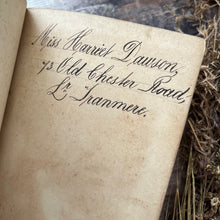 Miss Harriet Dawson,
73 Old Chester Road,
Lr Tranmere.